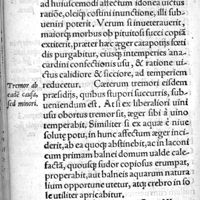 ad huiuscemodi affectum idonea uictus
ratiōe, oleiqꝫ costini inunctione, illi sub-
ueniri poterit. Verum si inueterauerit,
maiorqꝫ morbus ob pituitosi succi copiā
extiterit, præter hæc æger catapotijs cœci
disti purgabitur, eiusqꝫ intemperies ana-
cardini confectione castigabitur, & ratiōe ui-
ctus calidiore & sicciore, ad temperiem
reducetur. Cæterum tremori eisdem
præsidijs, quibus stupori succurris, sub-
ueniendum est. At si ex liberaliori uini
usu obortus tremor sit, æger sibi à uino
temperabit. Similiter si ex aquæ niuē
solutę potu, in hunc affectum æger inci-
derit, ab ea quoqꝫ abstinebit, ac in laconi
cum primam balnei domum ualde calefa-
ctã, quousqꝫ sudor copiosus erumpat,
properabit, aut balneis aquarum natura
lium opportune utetur, atqꝫ crebro in so
le uitabit.
Tremor ab
eadē causa,
sed minori.